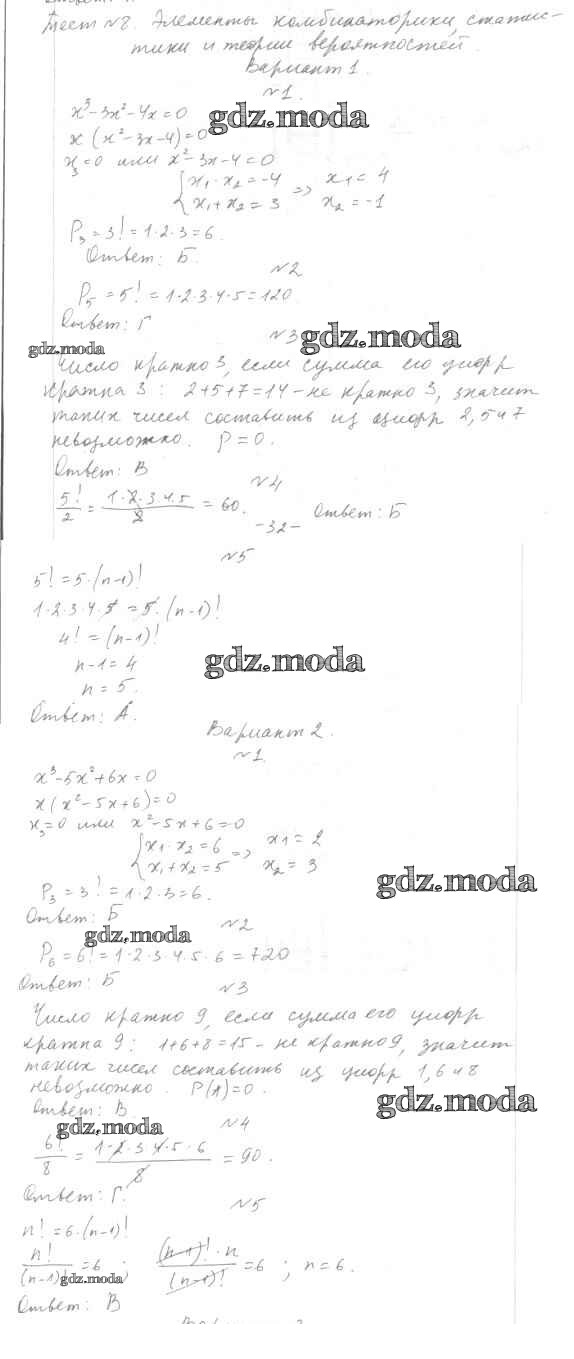 Тест №8. Элементы комбинаторики, статис-
тики и теории вероятностей.
Вариант 1.
№1.
x³-3x²-4x=0
gdz.moda
x(x²-3x-4)=0
x₃=0 или x²-3x-4=0
{x₁·x₂=-4 => x₁=4
{x₁+x₂=3 x₂=-1
P₃=3!=1·2·3=6.
Ответ: Б.
№2
P₅=5!=1·2·3·4·5=120.
Ответ: Г
№3
gdz.moda
gdz.moda
Число кратно 3, если сумма его цифр
кратна 3: 2+5+7=14-не кратно 3, значит
таких чисел составить из цифр 2, 5 и 7
невозможно. P=0.
Ответ: В
№4
5!/2 = 1·2·3·4·5/2 = 60. Ответ: Б
-32-
№5
5!=5·(n-1)!
1·2·3·4·5=5·(n-1)!
4!=(n-1)!
n-1=4
gdz.moda
n=5.
Ответ: А.
Вариант 2.
№1.
x³-5x²+6x=0
x(x²-5x+6)=0
x₃=0 или x²-5x+6=0
{x₁·x₂=6 => x1=2
{x₁+x₂=5 x₂=3
gdz.moda
P₃=3!=1·2·3=6.
Ответ: Б
№2
gdz.moda
P₆=6!=1·2·3·4·5·6=720
Ответ: Б
№3
Число кратно 9, если сумма его цифр
кратна 9: 1+6+8=15-не кратно 9, значит
таких чисел составить из цифр 1, 6 и 8
невозможно. P(A)=0.
gdz.moda
Ответ: В
№4
gdz.moda
6!/8 = 1·2·3·4·5·6/8 = 90.
Ответ: Г.
№5
n!=6·(n-1)!
n!/(n-1)!=6; (n-1)!·n/(n-1)!=6; n=6.
gdz.moda
Ответ: В